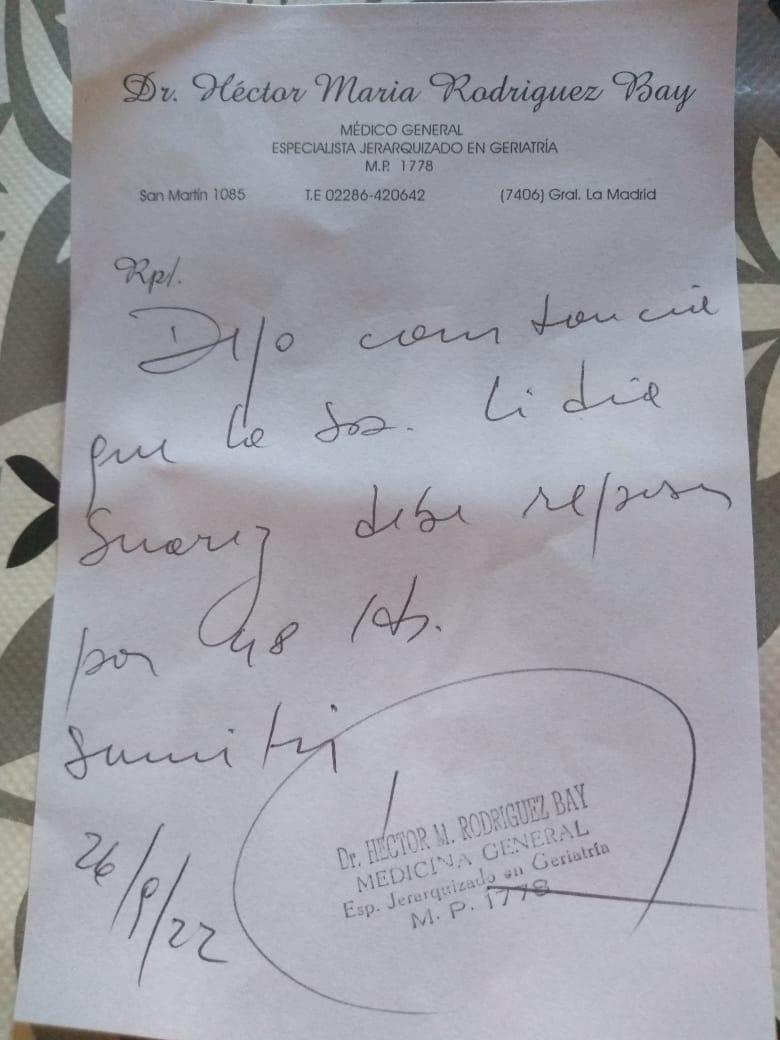 Dr. Héctor Maria Rodriguez Bay
MÉDICO GENERAL
ESPECIALISTA JERARQUIZADO EN GERIATRÍA
M.P. 1778
San Martín 1085 T.E 02286-420642 (7406) Gral. La Madrid
Rp/.
Dejo constancia
que la Sra. Lidia
Suarez debe reposar
por 48 Hs.
26/9/22
Dr. HECTOR M. RODRIGUEZ BAY
MEDICINA GENERAL
Esp. Jerarquizado en Geriatría
M. P. 1778